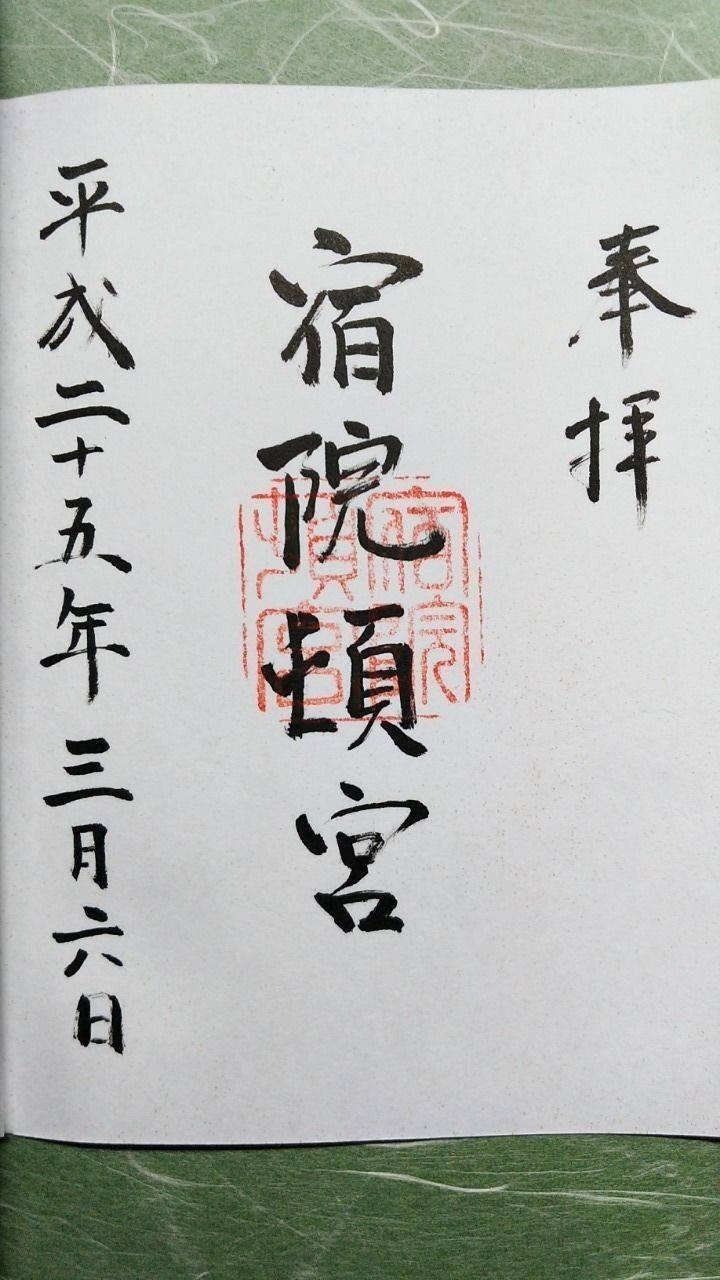 奉拝
宿院頓宮
宿院
頓宮
平成二十五年三月六日